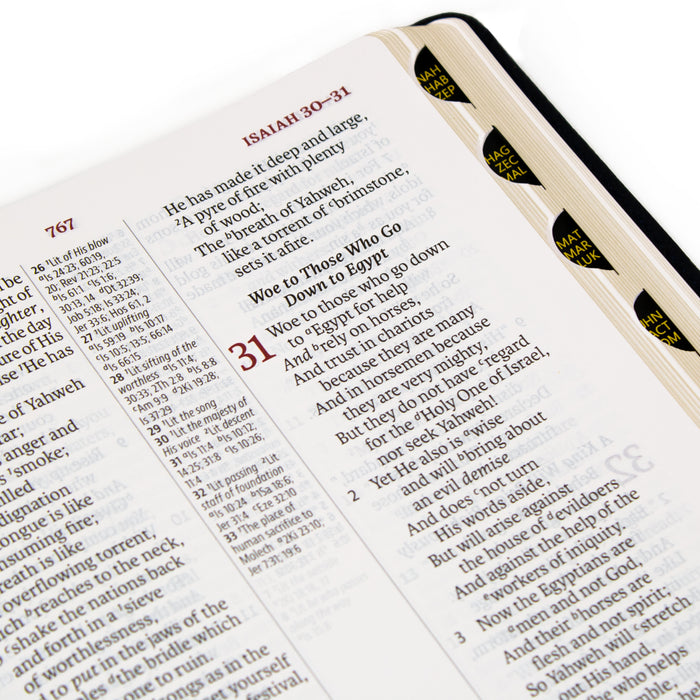 ISAIAH 30–31
767
n be
ght of
ghter,
the day
ture of His
ause ʳHe has
e of Yahweh
tar;
anger and
ˢsmoke;
illed
dignation
ongue is like
nsuming fire;
reath is like
overflowing torrent,
ich ᵇreaches to the neck,
ᶜshake the nations back
and forth in a ¹sieve
of worthlessness,
d to put in the jaws of the
ples ᵈthe bridle which
one to ruin.
songs as in the
et yourself
festival,
26 ¹Lit of His blow
ᵃIs 24:23; 60:19,
20; Rev 21:23; 22:5
ᵇIs 61:1 ᶜIs 1:6;
30:13, 14 ᵈDt 32:39;
Job 5:18; Is 33:24;
Jer 33:6; Hos 6:1, 2
27 ¹Lit uplifting
ᵃIs 59:19 ᵇIs 10:17
ᶜIs 10:5; 13:5; 66:14
ᵈIs 66:15
28 ¹Lit sifting of the
worthless ᵃIs 11:4;
30:33; 2Th 2:8 ᵇIs 8:8
ᶜAm 9:9 ᵈ2Ki 19:28;
Is 37:29
29 ¹Lit the song
30 ¹Lit the majesty of
His voice ²Lit descent
31 ᵃIs 11:4 ᵇIs 10:12;
14:25; 31:8 ᶜIs 10:26;
11:4
32 ¹Lit passing ²Lit
staff of foundation
ᵃIs 10:24 ᵇ1Sa 18:6;
Jer 31:4 ᶜEze 32:10
33 ¹The place of
human sacrifice to
Molech ᵃ2Ki 23:10;
Jer 7:31; 19:6
He has made it deep and large,
²A pyre of fire with plenty
of wood;
The ᵇbreath of Yahweh,
like a torrent of ᶜbrimstone,
sets it afire.
Woe to Those Who Go
Down to Egypt
31 Woe to those who go down
to ᵃEgypt for help
And ᵇrely on horses,
And trust in chariots
because they are many
And in horsemen because
they are very mighty,
But they do not have ᶜregard
for the ᵈHoly One of Israel,
nor seek Yahweh!
2 Yet He also is ᵃwise
and will ᵇbring about
an evil demise
And does ᶜnot turn
His words aside,
But will arise against
the house of ᵈevildoers
And against the help of the
ᵉworkers of iniquity.
3 Now the Egyptians are
ᵃmen and not God,
And their ᵇhorses are
flesh and not spirit;
So Yahweh will ᶜstretch
out His hand,
who helps
NAH
HAB
ZEP
HAG
ZEC
MAL
MAT
MAR
LUK
JHN
ACT
ROM